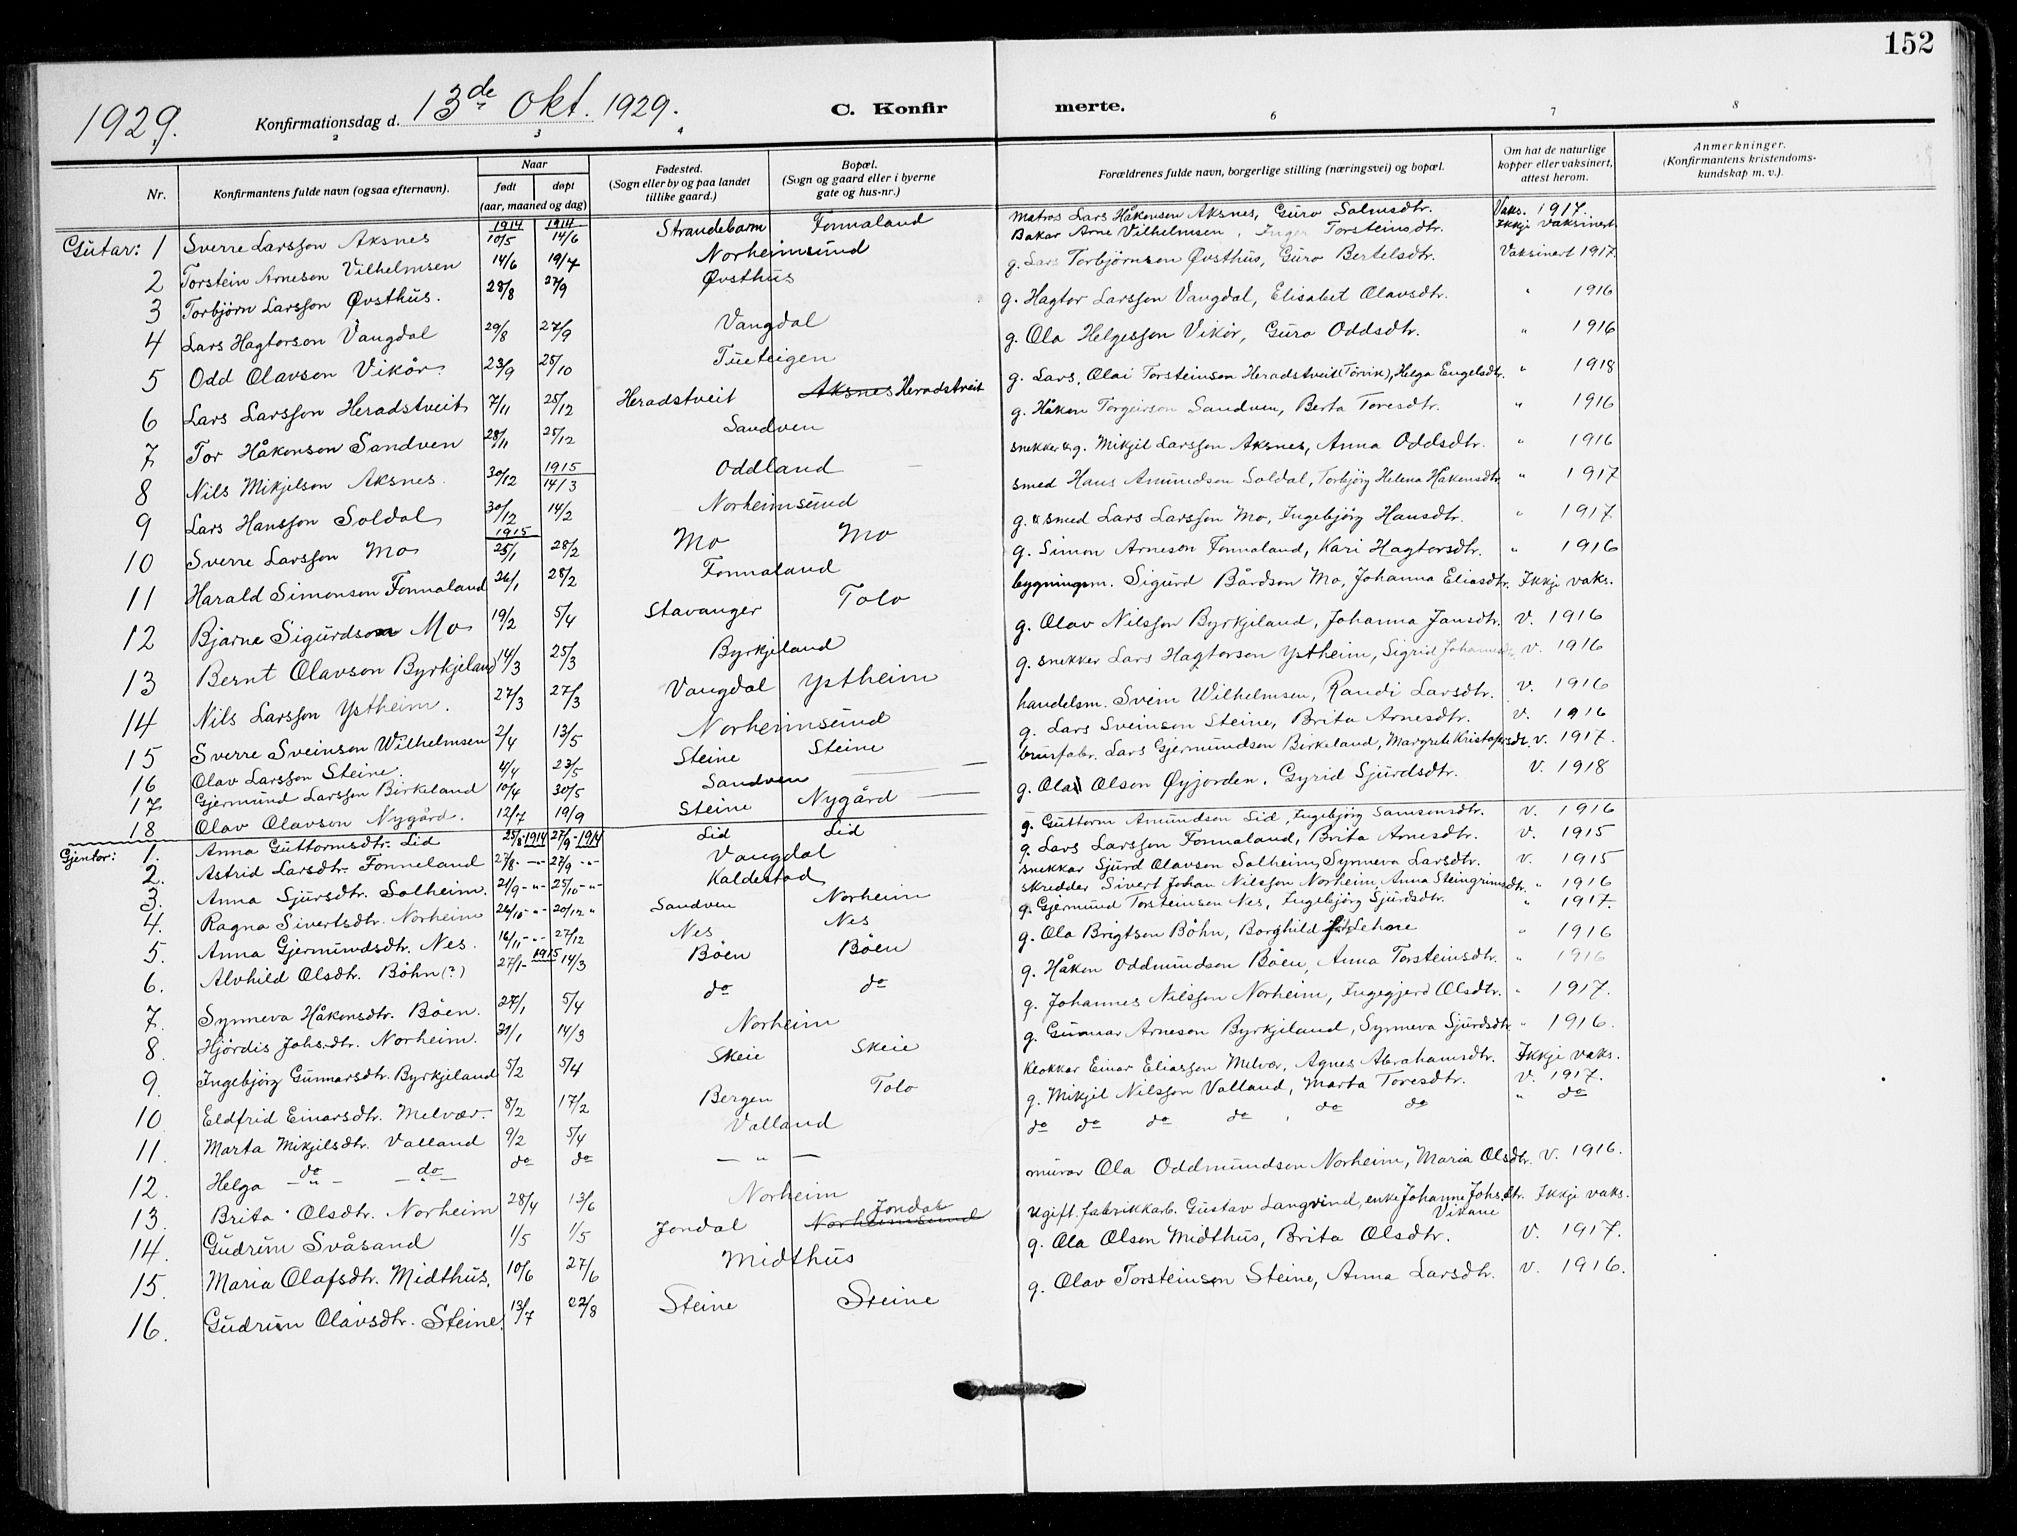 152
1929.
Konfirmationsdag d. 13de Okt. 1929.
C. Konfirmerte.
2 3 4 6 7 8
Nr. Konfirmantens fulde navn (ogsaa efternavn). Naar født døpt (aar, maaned og dag) Fødested. (Sogn eller by og paa landet tillike gaard.) Bopæl. (Sogn og gaard eller i byerne gate og hus-nr.) Forældrenes fulde navn, borgerlige stilling (næringsvei) og bopæl. Om hat de naturlige kopper eller vaksinert, attest herom. Anmerkninger. (Konfirmantens kristendoms-kundskap m. v.).
Gutar: 1 Sverre Larsson Aksnes 1914 10/5 1914 14/6 Strandebarm Fonnaland Matros Lars Håkonson Aksnes, Guro Salmsdtr. Vaks. 1917.
2 Torstein Arneson Vilhelmsen 14/6 19/7 Norheimsund Bakar Arne Vilhelmsen, Inger Torsteinsdtr. Ikkje vaksinert
3 Torbjörn Larsson Øvsthus. 28/8 27/9 Øvsthus g. Lars Torbjørnson Øvsthus, Guro Bertelsdtr. Vaksinert 1917.
4 Lars Hagtorson Vangdal 29/8 27/9 Vangdal g. Hagtor Larsson Vangdal, Elisabet Olavsdtr. " 1916
5 Odd Olavson Vikør 23/9 25/10 Tueteigen g. Ola Helgesson Vikør, Guro Oddsdtr. " 1916
6 Lars Larsson Heradstveit 7/11 25/12 Heradstveit Aksnes Heradstveit g. Lars, Olai Torsteinson Heradstveit (Törvik), Helga Engelsdtr. " 1918
7 Tor Håkonson Sandven 28/11 25/12 Sandven g. Håkon Torgeirson Sandven, Berta Toresdtr. " 1916
8 Nils Mikjelson Aksnes. 30/12 1915 14/3 Oddland snekker & g. Mikjil Larsson Aksnes, Anna Oddsdtr. " 1916
9 Lars Hansson Soldal 30/12 14/2 Norheimsund smed Hans Amundson Soldal, Torbjörg Helena Håkonsdtr. " 1917
10 Sverre Larsson Mo 1915 25/1 28/2 Mo Mo g. & smed Lars Larsson Mo, Ingebjörg Hansdtr. " 1917
11 Harald Simonson Fonnaland 26/1 28/2 Fonnaland g. Simon Arneson Fonnaland, Kari Hagtorsdtr. " 1916
12 Bjarne Sigurdson Mo 19/2 5/4 Stavanger Tolo bygningsm. Sigurd Bårdson Mo, Johanna Eliasdtr. Ikkje vaks.
13 Bernt Olavson Byrkjeland 14/3 25/3 Byrkjeland g. Olav Nilsson Byrkjiland, Johanna Jansdtr. v. 1916
14 Nils Larsson Ystheim. 27/3 27/3 Vangdal Ystheim g. snekker Lars Hagtorson Ystheim, Sigrid v. 1916
15 Sverre Sveinson Wilhelmsen 2/4 13/5 Norheimsund handelsm. Svein Wilhelmsen, Randi Larsdtr. v. 1916
16 Olav Larsson Steine. 4/4 23/5 Steine Steine g. Lars Sveinson Steine, Brita Arnesdtr. v. 1916
17 Gjermund Larsson Birkeland 10/4 30/5 Sandven brusfabr. Lars Gjermundson Birkeland, Margrete Kristofersdt. v. 1917.
18 Olav Olavson Nygård. 12/7 19/9 Steine Nygård g. Ola Olson Øyjorden, Gyrid Sjurdsdtr. v. 1918
Gjentor: 1. Anna Guttormsdtr. Lid 25/8-1914 27/9-1914 Lid Lid g. Guttorm Amundson Lid, Ingebjörg Samsonsdtr. v. 1916
2. Astrid Larsdtr. Fonneland 27/8 -"- 27/9 -"- Vangdal g. Lars Larsson Fonnaland, Brita Arnesdtr. v. 1915
3. Anna Sjursdtr. Solheim. 21/9 -"- 25/10 -"- Kaldestad snekkar Sjurd Olavson Solheim, Synneva Larsdtr. v. 1915
4. Ragna Sivertsdtr. Norheim 26/10 -"- 20/12 " Sandven Norheim skredder Sivert Johan Nilsson Norheim, Anna Steingrimsdtr. " 1916
5. Anna Gjermundsdtr. Nes. 16/11 -"- 27/12 Nes Nes g. Gjermund Torsteinson Nes, Ingebjörg Sjurdsdtr. " 1917.
6. Alvhild Olsdtr. Böhn (?) 27/1- 1915 14/3 Böen Böen g. Ola Brigtson Böhn, Borghild Lehore " 1916
7. Synneva Håkonsdtr. Böen. 27/1 5/4 do do g. Håkon Oddmundson Böen, Anna Torsteinsdtr. " 1916
8. Hjördis Johs.dtr. Norheim. 31/1 14/3 Norheim g. Johannes Nilsson Norheim, Ingegjerd Olsdtr. " 1917.
9. Ingebjörg Gunnarsdtr. Byrkjeland 5/2 5/4 Skeie Skeie g. Gunnar Arneson Byrkjeland, Synneva Sjurdsdtr " 1916.
10. Eldfrid Einarsdtr. Melvær. 8/2 17/2 Bergen Tolo klokkar Einar Eliasson Melvær, Agnes Abrahamsdtr. Ikkje vaks.
11. Marta Mikjilsdtr. Valland 9/2 5/4 Valland g. Mikjil Nilsson Valland, Marta Toresdtr. v. 1917.
12. Helga do do do do — " — do do do do do do " do
13. Brita Olsdtr. Norheim 28/4 13/6 Norheim murar Ola Oddmundson Norheim, Maria Olsdtr. v. 1916.
14. Gudrun Svåsand 1/5 1/5 Jondal Norheimsund Jondal ugift. fabrikkarb. Gustav Langvind, enke Johanne Johs.dtr. Vikane Ikkje vaks.
15. Maria Olafsdtr. Midthus. 10/6 27/6 Midthus g. Ola Olson Midthus, Brita Olsdtr. v. 1917.
16. Gudrun Olavsdtr. Steine. 13/7 22/8 Steine Steine g. Olav Torsteinson Steine, Anna Larsdtr. v. 1916.